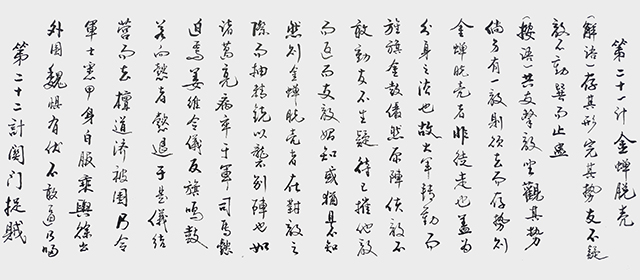 第二十一计 金蝉脱壳
(解语)存其形 完其势 友不疑
敌不动 巽而止蛊
(按语)共友击敌 坐观其势
倘另有一敌 则须去而存势 则
金蝉脱壳者 非徒走也 盖为
分身之法也 故大军转动 而
旌旗金鼓 俨然原阵 使敌不
敢动 友不生疑 待己摧他敌
而返 而友敌始知 或犹且不知
然则金蝉脱壳者 在对敌之
际 而抽精锐以袭别阵也 如
诸葛亮病卒于军 司马懿
追焉 姜维令仪反旗鸣鼓
若向懿者 懿退 于是仪结
营而去 檀道济被围 乃令
军士悉甲 身白服乘舆徐出
外围 魏惧有伏 不敢逼 乃归
第二十二计 关门捉贼